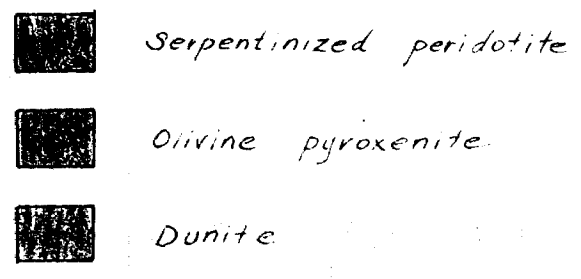 Serpentinized peridotite
Olivine pyroxenite
Dunite